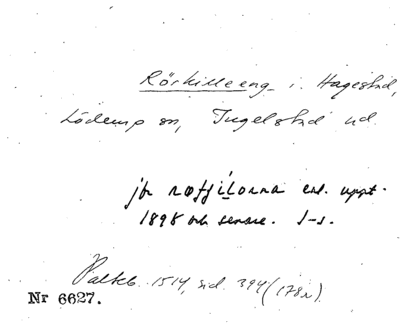 Rörkilleeng i. Hagestad,
Löderup sn, Ingelstad hd.
jfr enl. uppt.
1898 och senare. I-s.
Palteb. 1514, sid. 394 (178r)
Nr 6627.